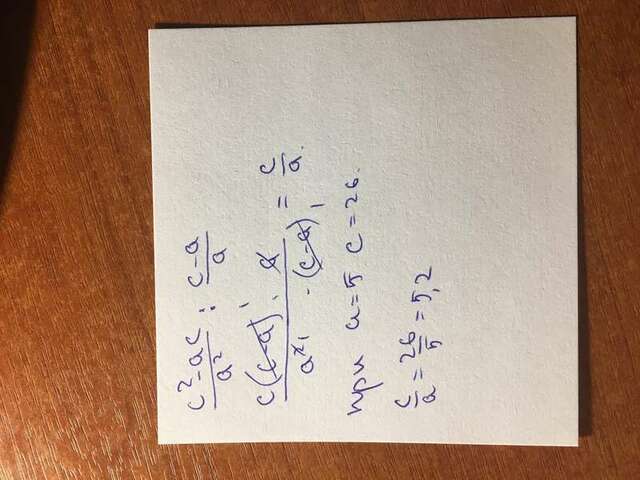 c²-ac/a² : c-a/a
c(c-a) · a/a² · (c-a) = c/a.
при a=5 c=26.
c/a = 26/5 = 5,2